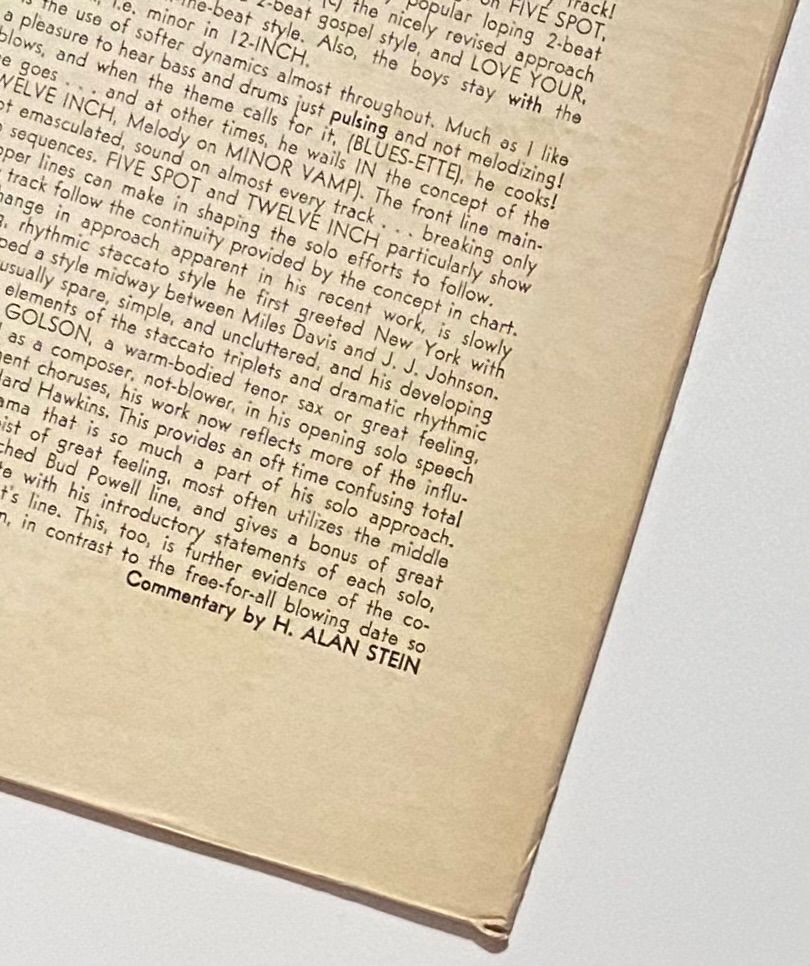 track!
on FIVE SPOT,
popular loping 2-beat
(c) the nicely revised approach
2-beat gospel style, and LOVE YOUR,
the-beat style. Also, the boys stay with the
i.e. minor in 12-INCH.
the use of softer dynamics almost throughout. Much as I like
a pleasure to hear bass and drums just pulsing and not melodizing!
blows, and when the theme calls for it, (BLUES-ETTE), he cooks!
e goes . . . and at other times, he wails IN the concept of the
WELVE INCH, Melody on MINOR VAMP). The front line main-
ot emasculated, sound on almost every track . . . breaking only
sequences. FIVE SPOT and TWELVE INCH particularly show
pper lines can make in shaping the solo efforts to follow.
track follow the continuity provided by the concept in chart.
hange in approach apparent in his recent work, is slowly
g, rhythmic staccato style he first greeted New York with
ped a style midway between Miles Davis and J. J. Johnson.
usually spare, simple, and uncluttered, and his developing
elements of the staccato triplets and dramatic rhythmic
GOLSON, a warm-bodied tenor sax or great feeling,
as a composer, not-blower, in his opening solo speech
ent choruses, his work now reflects more of the influ-
lard Hawkins. This provides an oft time confusing total
ama that is so much a part of his solo approach.
ist of great feeling, most often utilizes the middle
ched Bud Powell line, and gives a bonus of great
te with his introductory statements of each solo,
t's line. This, too, is further evidence of the co-
n, in contrast to the free-for-all blowing date so
Commentary by H. ALAN STEIN